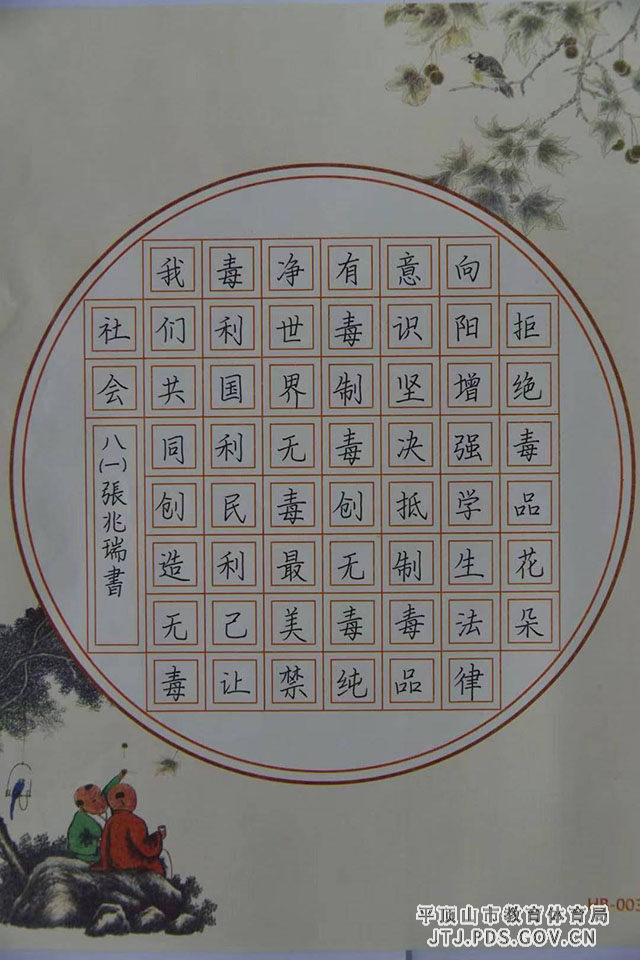 拒绝毒品花朵
向阳增强学生法律
意识坚决抵制毒品
有毒制毒创无毒纯
净世界无毒最美禁
毒利国利民利己让
我们共同创造无毒
社会
八(一)張兆瑞書
HB-003
平顶山市教育体育局
JTJ.PDS.GOV.CN